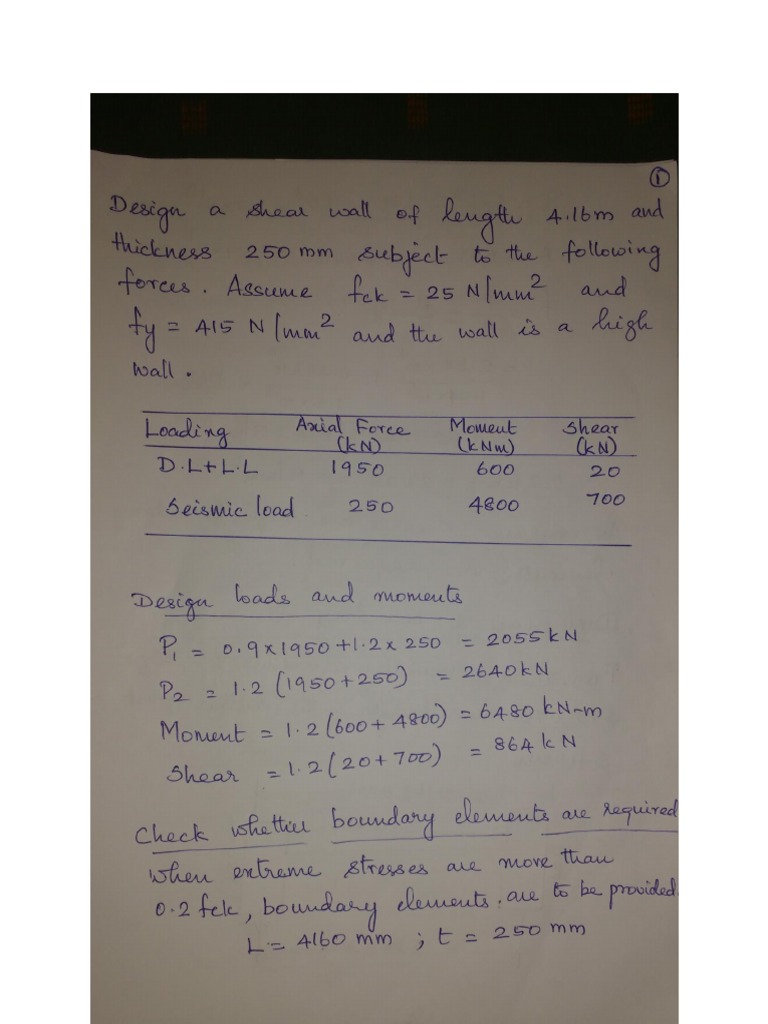 ①
Design a shear wall of length 4.16m and
thickness 250 mm subject to the following
forces. Assume fck = 25 N/mm² and
fy = 415 N/mm² and the wall is a high
wall.
Loading Axial Force (kN) Moment (kNm) Shear (kN)
D.L+L.L 1950 600 20
Seismic load 250 4800 700
Design loads and moments
P₁ = 0.9×1950+1.2×250 = 2055kN
P₂ = 1.2 (1950+250) = 2640kN
Moment = 1.2(600+4800) = 6480 kN-m
Shear = 1.2(20+700) = 864kN
Check whether boundary elements are required
When extreme stresses are more than
0.2 fck, boundary elements are to be provided.
L = 4160 mm ; t = 250 mm